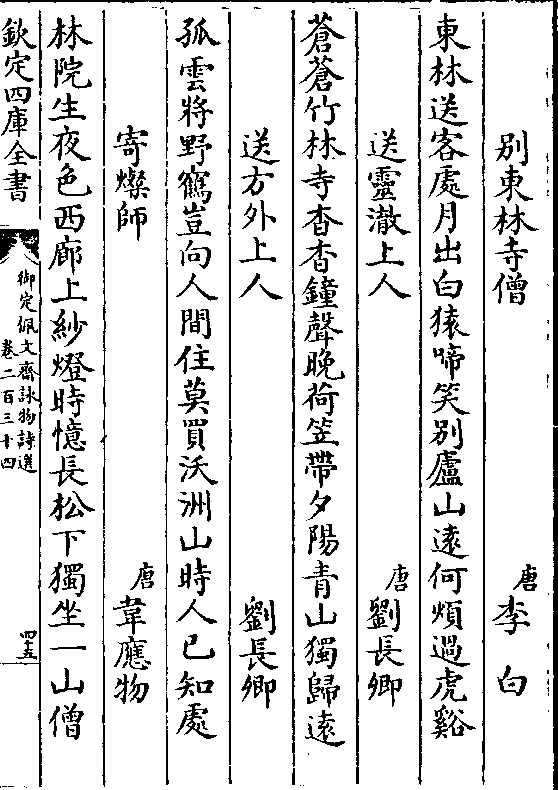 別東林寺僧 唐 李白
東林送客處月出白猿啼笑别廬山遠何煩過虎谿
送靈澈上人 唐 劉長卿
蒼蒼竹林寺杳杳鐘聲晚荷笠帶夕陽青山獨歸遠
送方外上人 劉長卿
孤雲將野鶴豈向人間住莫買沃洲山時人已知處
寄燦師 唐 韋應物
林院生夜色西廊上紗燈時憶長松下獨坐一山僧
欽定四庫全書
御定佩文齋詠物詩選
卷二百三十四
四五